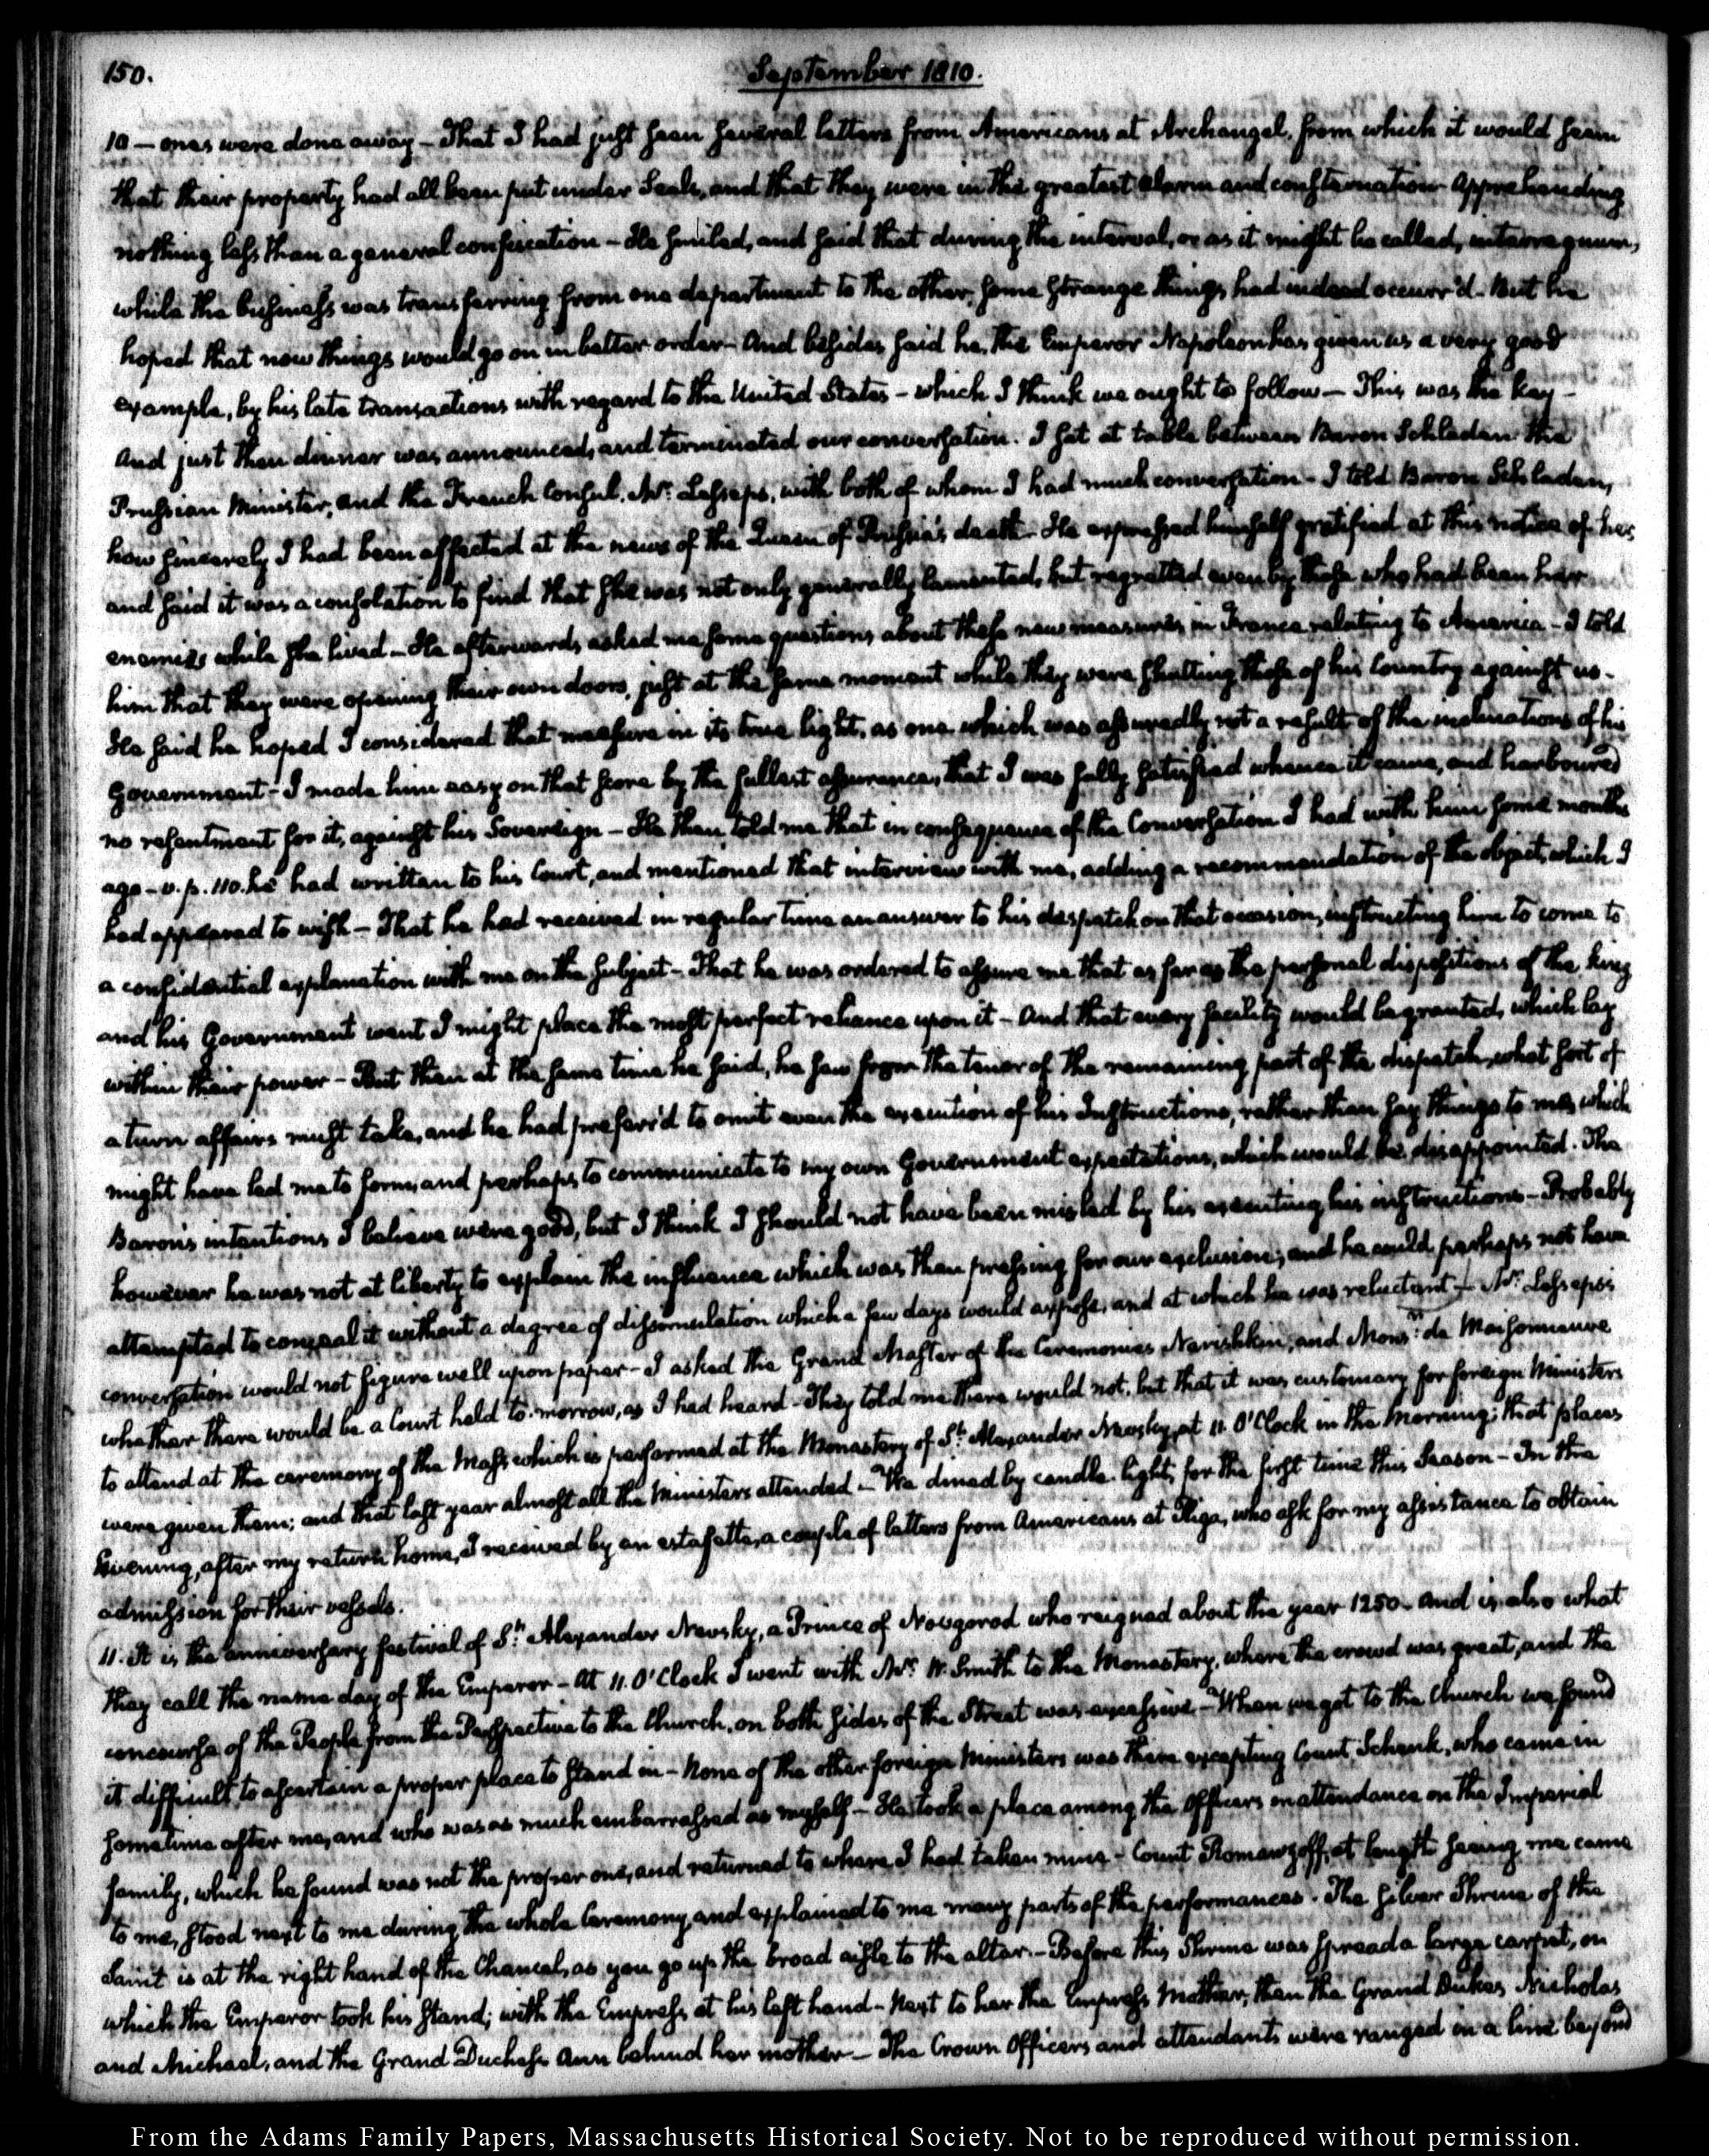 150.
September 1810.
10 — ones were done away — That I had just seen several letters from Americans at Archangel, from which it would seem
that their property had all been put under Seals, and that they were in the greatest alarm and consternation apprehending
nothing less than a general confiscation — He smiled, and said that during the interval, or as it might be called, interregnum,
while the business was transferring from one department to the other, some strange things had indeed occurr'd. But he
hoped that now things would go on in better order — And besides said he, the Emperor Napoleon has given us a very good
example, by his late transactions with regard to the United States — which I think we ought to follow — This was the key —
And just then dinner was announced, and terminated our conversation. I sat at table between Baron Schladen the
Prussian Minister, and the French Consul, Mr. Lesseps, with both of whom I had much conversation — I told Baron Schladen,
how sincerely I had been affected at the news of the Queen of Prussia's death — He expressed himself gratified at this notice of her
and said it was a consolation to find that she was not only generally lamented, but regretted even by those who had been her
enemies while she lived — He afterwards asked me some questions about these new measures in France relating to America — I told
him that they were opening their own doors, just at the same moment while they were shutting those of his Country against us —
He said he hoped I considered that measure in its true light, as one which was assuredly not a result of the inclinations of his
Government — I made him easy on that score by the fullest assurances, that I was fully satisfied whence it came, and harboured
no resentment for it, against his Sovereign — He then told me that in consequence of the Conversation I had with him some months
ago — v. p. 110. he had written to his Court, and mentioned that interview with me, adding a recommendation of the object, which I
had appeared to wish — That he had received in regular time an answer to his despatch on that occasion, instructing him to come to
a confidential explanation with me on the subject — That he was ordered to assure me that as far as the personal dispositions of the king
and his Government went I might place the most perfect reliance upon it — And that every facility would be granted, which lay
within their power — But then at the same time he said, he saw from the tenor of the remaining part of the dispatch, what sort of
a turn affairs must take, and he had prefer'd to omit even the execution of his Instructions, rather than say things to me, which
might have led me to form, and perhaps to communicate to my own Government expectations, which would be disappointed. The
Baron's intentions I believe were good, but I think I should not have been misled by his executing his instructions — Probably
however he was not at liberty to explain the influence which was then pressing for our exclusion; and he could perhaps not have
attempted to conceal it without a degree of dissimulation which a few days would expose, and at which he was reluctant — Mr. Lesseps's
conversation would not figure well upon paper — I asked the Grand Master of the Ceremonies Narishkin, and Monsr. de Maisonneuve
whether there would be a Court held to-morrow, as I had heard — They told me there would not, but that it was customary for foreign Ministers
to attend at the ceremony of the Mass, which is performed at the Monastery of St. Alexander Nevsky, at 11. O'Clock in the Morning; that places
were given them; and that last year almost all the Ministers attended — We dined by candle-light, for the first time this Season — In the
Evening, after my return home, I received by an estafette, a couple of letters from Americans at Riga, who ask for my assistance to obtain
admission for their vessels.
11. It is the anniversary festival of St. Alexander Nevsky, a Prince of Novgorod who reigned about the year 1250 — And is also what
they call the name day of the Emperor — At 11. O'Clock I went with Mr. W. Smith to the Monastery, where the crowd was great, and the
concourse of the People from the Perspective to the Church, on both sides of the Street was excessive — When we got to the Church we found
it difficult to ascertain a proper place to stand in — None of the other foreign Ministers was there excepting Count Schenk, who came in
sometime after me, and who was as much embarrassed as myself — He took a place among the Officers in attendance on the Imperial
family, which he found was not the proper one, and returned to where I had taken mine — Count Romanzoff, at length seeing me came
to me, stood next to me during the whole Ceremony, and explained to me many parts of the performances. The silver Shrine of the
Saint is at the right hand of the Chancel, as you go up the broad aisle to the altar — Before this Shrine was spread a large carpet, on
which the Emperor took his stand; with the Empress at his left hand — Next to her the Empress Mother, then the Grand Dukes Nicholas
and Michael, and the Grand Duchess Ann behind her mother — The Crown Officers and attendants were ranged in a line beyond
From the Adams Family Papers, Massachusetts Historical Society. Not to be reproduced without permission.